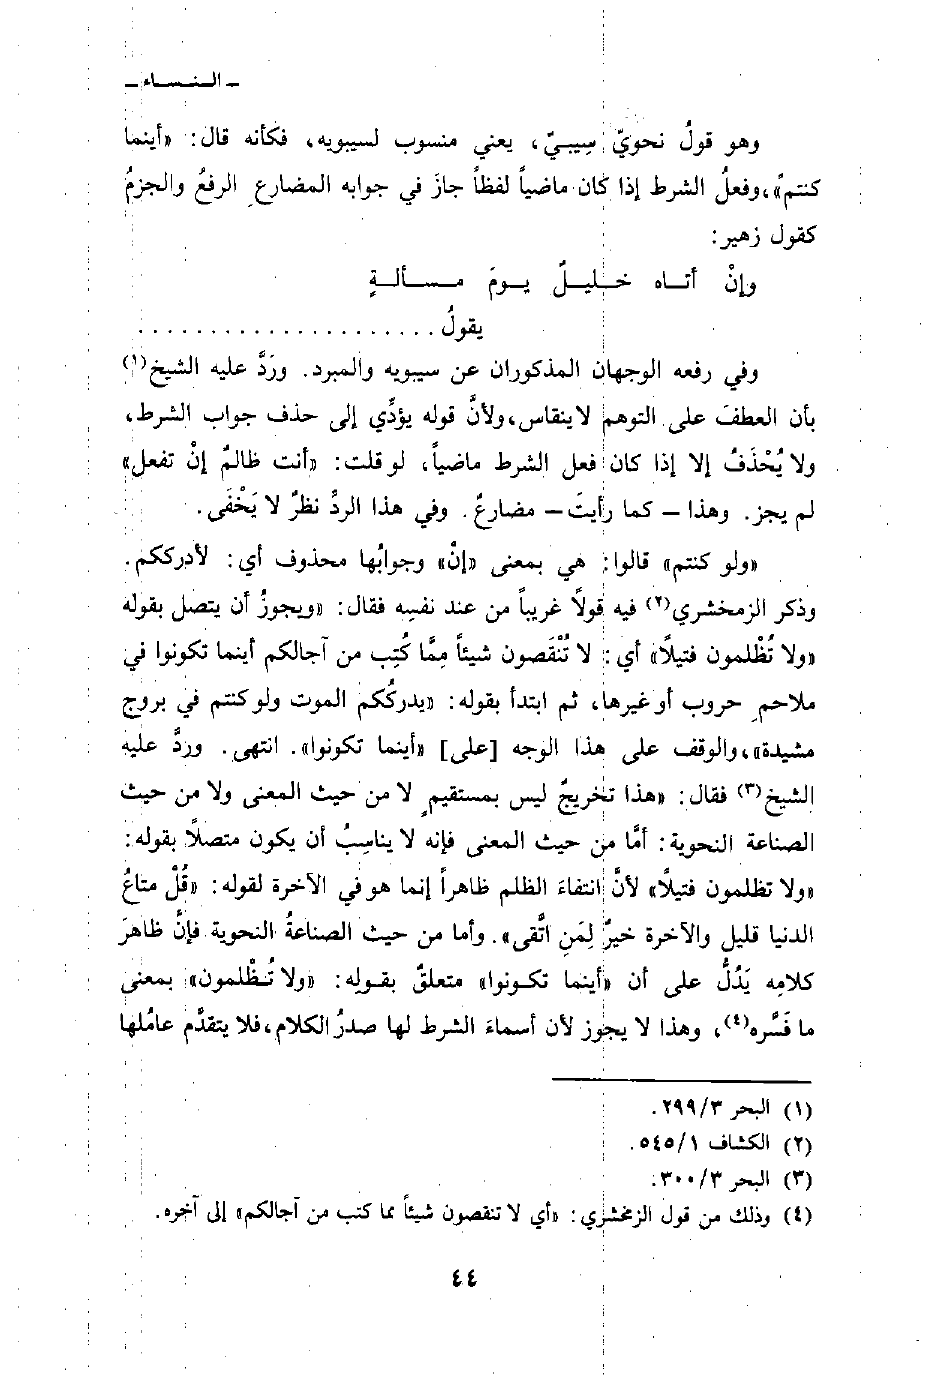 ـ الـنـسـاء ـ
وهو قولُ نحويّ سِيبيّ، يعني منسوب لسيبويه، فكأنه قال: «أينما
كنتم»، وفعلُ الشرط إذا كان ماضياً لفظاً جازَ في جوابه المضارعِ الرفعُ والجزمُ
كقول زهير:
وإنْ أتـاه خـليـلٌ يـومَ مـسـألـةٍ
يقولُ . . . . . . . . . . . . . . . . . . . .
وفي رفعه الوجهان المذكوران عن سيبويه والمبرد. ورَدَّ عليه الشيخ(١)
بأن العطفَ على التوهم لا ينقاس، ولأنَّ قوله يؤدِّي إلى حذف جواب الشرط،
ولا يُحْذَفُ إلا إذا كان فعل الشرط ماضياً، لو قلت: «أنت ظالمٌ إنْ تفعل»
لم يجز. وهذا ــ كما رأيتَ ــ مضارعٌ. وفي هذا الردِّ نظرٌ لا يَخْفَى.
«ولو كنتم» قالوا: هي بمعنى «إنْ» وجوابُها محذوف أي: لأدرككم.
وذكر الزمخشري(٢) فيه قولاً غريباً من عند نفسِه فقال: «ويجوزُ أن يتصل بقوله
«ولا تُظْلمون فتيلًا» أي: لا تُنْقَصون شيئاً مِمَّا كُتِب من آجالكم أينما تكونوا في
ملاحمِ حروب أو غيرها، ثم ابتدأ بقوله: «يدركُكم الموت ولو كنتم في بروج
مشيدة»، والوقف على هذا الوجه [على] «أينما تكونوا». انتهى. وردَّ عليه
الشيخ(٣) فقال: «هذا تخريجٌ ليس بمستقيمٍ لا من حيث المعنى ولا من حيث
الصناعة النحوية: أمَّا من حيث المعنى فإنه لا يناسِبُ أن يكون متصلاً بقوله:
«ولا تظلمون فتيلًا» لأنَّ انتفاءَ الظلم ظاهراً إنما هو في الآخرة لقوله: «قُلْ متاعُ
الدنيا قليل والآخرة خيرٌ لِمَنِ اتَّقى». وأما من حيث الصناعةُ النحوية فإنَّ ظاهرَ
كلامِه يَدُلُّ على أن «أينما تكـونوا» متعلقٌ بقـولِه: «ولا تُـظْلمون» بمعنى
ما فَسَّره(٤)، وهذا لا يجوز لأن أسماءَ الشرط لها صدرُ الكلام، فلا يتقدَّم عاملُها
(١) البحر ٢٩٩/٣.
(٢) الكشاف ٥٤٥/١.
(٣) البحر ٣٠٠/٣.
(٤) وذلك من قول الزمخشري: «أي لا تنقصون شيئاً مما كتب من آجالكم» إلى آخره.
٤٤